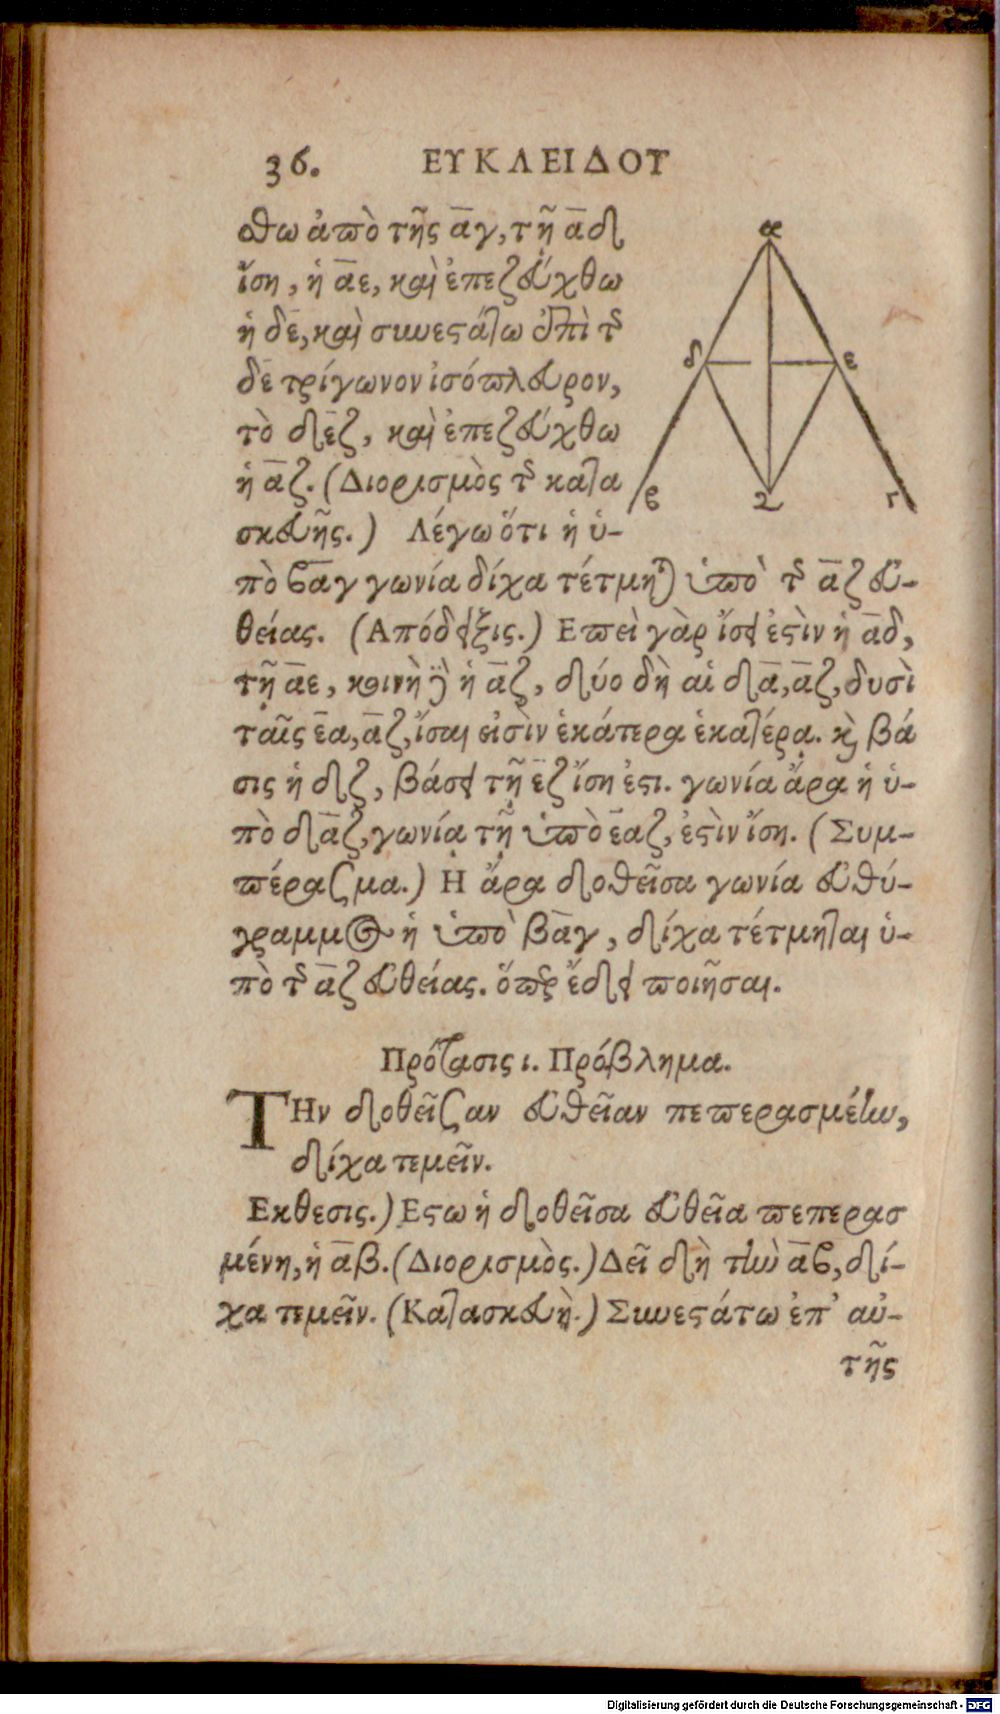 36. ΕΥΚΛΕΙΔΟΥ
σθω ἀπὸ τῆς α̅γ, τῇ α̅δ
ἴση, ἡ α̅ε, καὶ ἐπεζεύχθω
ἡ δε̅, καὶ συνεστάτω ἐπὶ τῆς
δε̅ τρίγωνον ἰσόπλευρον,
τὸ δε̅ζ, καὶ ἐπεζεύχθω
ἡ α̅ζ. (Διορισμὸς τῆς κατα
σκευῆς.) Λέγω ὅτι ἡ ὑ-
πὸ βα̅γ γωνία δίχα τέτμηται ὑπὸ τῆς α̅ζ εὐ-
θείας. (Απόδειξις.) Επεὶ γὰρ ἴση ἐστὶν ἡ α̅δ,
τῇ α̅ε, κοινὴ δὲ ἡ α̅ζ, δύο δὴ αἱ δα̅, α̅ζ, δυσὶ
ταῖς ε̅α, α̅ζ, ἴσαι εἰσὶν ἑκάτερα ἑκατέρᾳ. καὶ βά
σις ἡ δζ, βάσει τῇ ε̅ζ ἴση ἐστι. γωνία ἄρα ἡ ὑ-
πὸ δα̅ζ, γωνίᾳ τῇ ὑπὸ ε̅αζ, ἐστὶν ἴση. (Συμ-
πέρασμα.) Η ἄρα δοθεῖσα γωνία εὐθύ-
γραμμος ἡ ὑπὸ βα̅γ, δίχα τέτμηται ὑ-
πὸ τῆς α̅ζ εὐθείας. ὅπερ ἔδει ποιῆσαι.
Πρότασις ι. Πρόβλημα.
ΤΗν δοθεῖσαν εὐθεῖαν πεπερασμένην,
δίχα τεμεῖν.
Εκθεσις.) Εστω ἡ δοθεῖσα εὐθεῖα πεπερασ
μένη, ἡ α̅β. (Διορισμὸς.) Δεῖ δὴ τὴν α̅β, δί-
χα τεμεῖν. (Κατασκευὴ.) Συνεστάτω ἐπ' αὐ-
τῆς
α
δ ε
β ζ γ
Digitalisierung gefördert durch die Deutsche Forschungsgemeinschaft - DFG